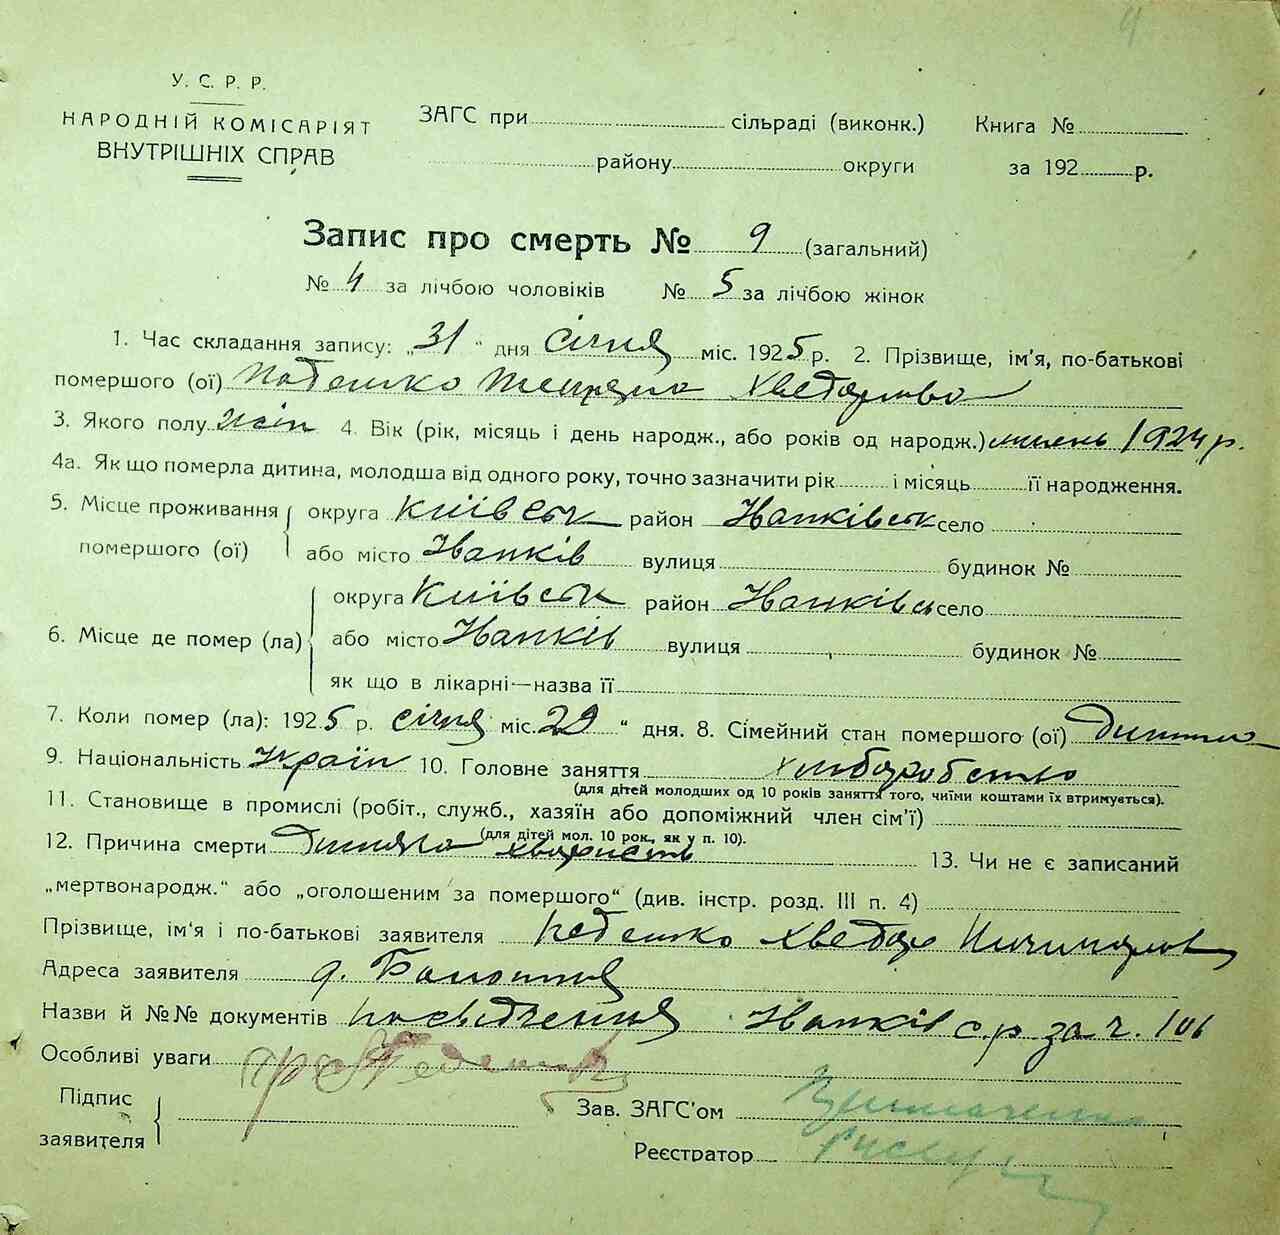 У. С. Р. Р.
НАРОДНІЙ КОМІСАРІЯТ
ВНУТРІШНІХ СПРАВ
ЗАГС при сільраді (виконк.)
району округи
Книга №
за 192 р.
Запис про смерть № 9 (загальний)
№ 4 за лічбою чоловіків № 5 за лічбою жінок
1. Час складання запису: „31" дня січня міс. 1925 р. 2. Прізвище, ім'я, по-батькові
помершого (ої)
3. Якого полу жін 4. Вік (рік, місяць і день народж., або років од народж.) 1924 р.
4а. Як що померла дитина, молодша від одного року, точно зазначити рік і місяць її народження.
5. Місце проживання помершого (ої) округа Київськ район Іванківськ село
або місто Іванків вулиця будинок №
6. Місце де помер (ла) округа Київськ район Іванківськ село
або місто Іванків вулиця будинок №
як що в лікарні—назва її
7. Коли помер (ла): 1925 р. січня міс. 29 " дня. 8. Сімейний стан помершого (ої) Дитина
9. Національність Україн 10. Головне заняття Хліборобство
(для дітей молодших од 10 років заняття того, чиїми коштами їх втримується).
11. Становище в промислі (робіт., служб., хазяїн або допоміжний член сім'ї)
(для дітей мол. 10 рок., як у п. 10).
12. Причина смерти Дитяча хворість 13. Чи не є записаний
„мертвонародж." або „оголошеним за помершого" (див. інстр. розд. III п. 4)
Прізвище, ім'я і по-батькові заявителя Хведор
Адреса заявителя
Назви й №№ документів посвідчення Іванків с.р. за ч. 106
Особливі уваги
Підпис
заявителя
Зав. ЗАГС'ом
Реєстратор